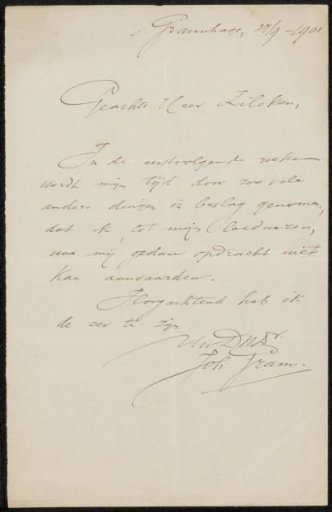 's Gravenhage, 17/9-1901
Geachte Heer Zilcken,
In de eerstvolgende weken
wordt mijn tijd door zoo vele
andere dingen in beslag genomen,
dat ik, tot mijn leedwezen,
uw mij gedane opdracht niet
kan aanvaarden.
Hoogachtend heb ik
de eer te zijn
Uw Dw Dr.
Joh Gram.